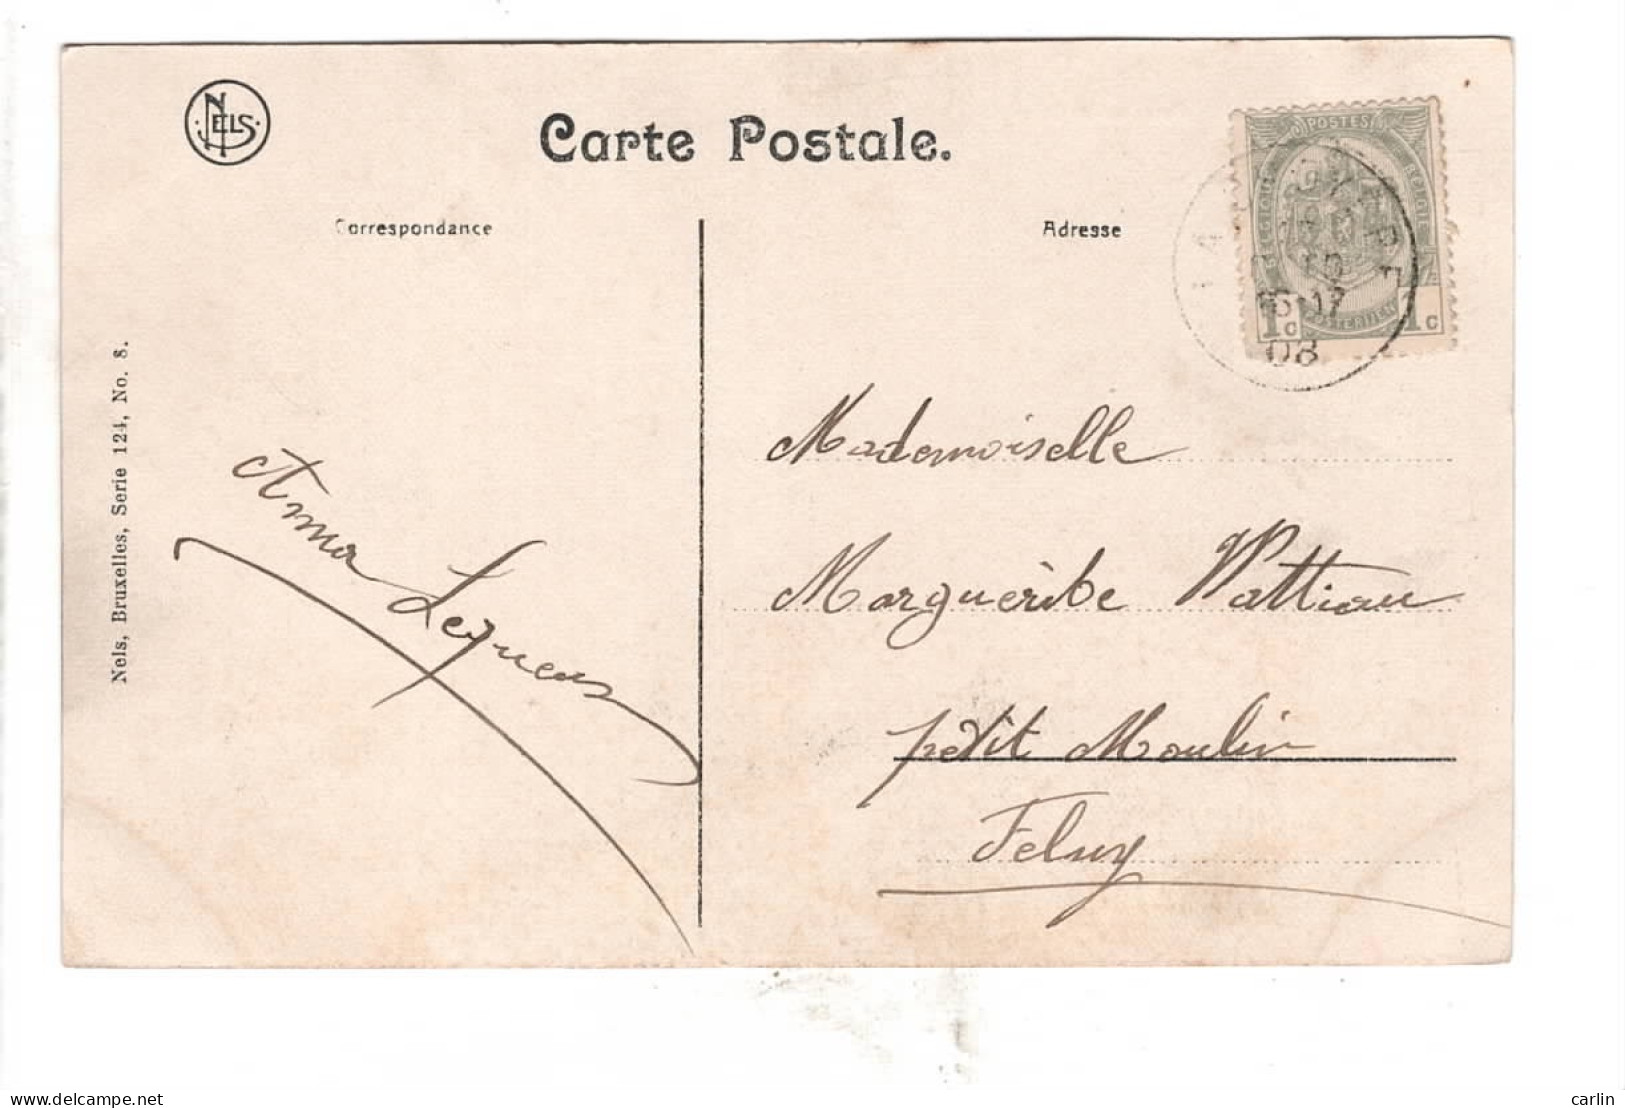 NELS
Carte Postale.
Correspondance
Adresse
POSTES
BELGIQUE
BELGIË
POSTERIJEN
1c
1c
16-17
08
Nels, Bruxelles, Serie 124, No. 8.
Mademoiselle
Marguerite Wattiau
petit Moulin
Feluy
Anna
delcampe.net
carlin